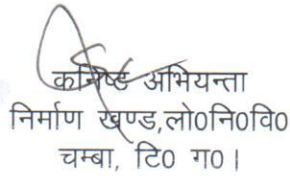 कनिष्ठ अभियन्ता
निर्माण खण्ड,लो0नि0वि0
चम्बा, टि0 ग0।